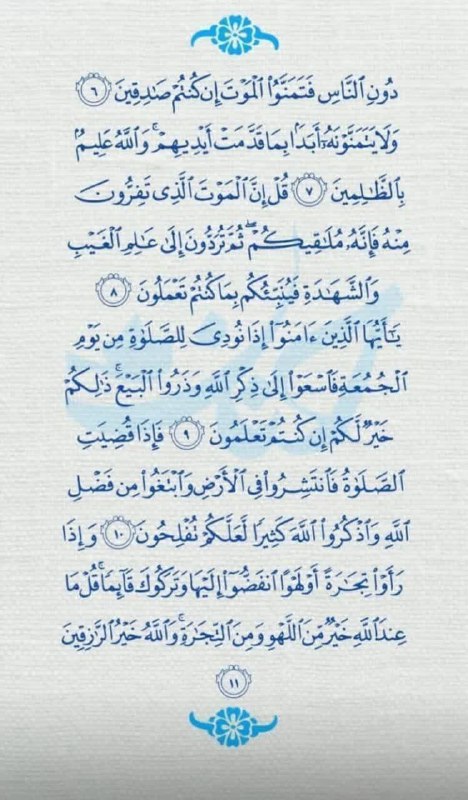 دُونِ ٱلنَّاسِ فَتَمَنَّوُا۟ ٱلْمَوْتَ إِن كُنتُمْ صَـٰدِقِينَ ٦
وَلَا يَتَمَنَّوْنَهُۥٓ أَبَدًۢا بِمَا قَدَّمَتْ أَيْدِيهِمْ ۚ وَٱللَّهُ عَلِيمٌۢ
بِٱلظَّـٰلِمِينَ ٧ قُلْ إِنَّ ٱلْمَوْتَ ٱلَّذِى تَفِرُّونَ
مِنْهُ فَإِنَّهُۥ مُلَـٰقِيكُمْ ۖ ثُمَّ تُرَدُّونَ إِلَىٰ عَـٰلِمِ ٱلْغَيْبِ
وَٱلشَّهَـٰدَةِ فَيُنَبِّئُكُم بِمَا كُنتُمْ تَعْمَلُونَ ٨
يَـٰٓأَيُّهَا ٱلَّذِينَ ءَامَنُوٓا۟ إِذَا نُودِىَ لِلصَّلَوٰةِ مِن يَوْمِ
ٱلْجُمُعَةِ فَٱسْعَوْا۟ إِلَىٰ ذِكْرِ ٱللَّهِ وَذَرُوا۟ ٱلْبَيْعَ ۚ ذَٰلِكُمْ
خَيْرٌ لَّكُمْ إِن كُنتُمْ تَعْلَمُونَ ٩ فَإِذَا قُضِيَتِ
ٱلصَّلَوٰةُ فَٱنتَشِرُوا۟ فِى ٱلْأَرْضِ وَٱبْتَغُوا۟ مِن فَضْلِ
ٱللَّهِ وَٱذْكُرُوا۟ ٱللَّهَ كَثِيرًا لَّعَلَّكُمْ تُفْلِحُونَ ١٠ وَإِذَا
رَأَوْا۟ تِجَـٰرَةً أَوْ لَهْوًا ٱنفَضُّوٓا۟ إِلَيْهَا وَتَرَكُوكَ قَآئِمًا ۚ قُلْ مَا
عِندَ ٱللَّهِ خَيْرٌ مِّنَ ٱللَّهْوِ وَمِنَ ٱلتِّجَـٰرَةِ ۚ وَٱللَّهُ خَيْرُ ٱلرَّٰزِقِينَ
١١